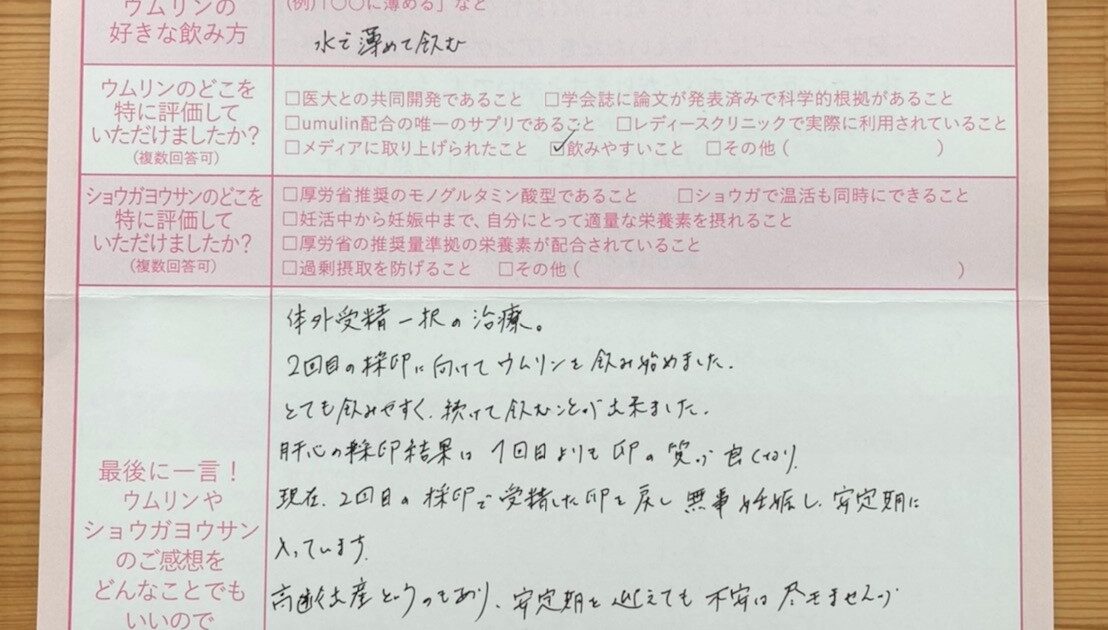 ウムリンの
好きな飲み方
(例)「〇〇に薄める」など
水で薄めて飲む
ウムリンのどこを
特に評価して
いただけましたか?
(複数回答可)
□医大との共同開発であること □学会誌に論文が発表済みで科学的根拠があること
□umulin配合の唯一のサプリであること □レディースクリニックで実際に利用されていること
□メディアに取り上げられたこと ☑飲みやすいこと □その他( )
ショウガヨウサンのどこを
特に評価して
いただけましたか?
(複数回答可)
□厚労省推奨のモノグルタミン酸型であること □ショウガで温活も同時にできること
□妊活中から妊娠中まで、自分にとって適量な栄養素を摂れること
□厚労省の推奨量準拠の栄養素が配合されていること
□過剰摂取を防げること □その他( )
最後に一言!
ウムリンや
ショウガヨウサン
のご感想を
どんなことでも
いいので
体外受精一択の治療。
2回目の採卵に向けてウムリンを飲み始めました。
とても飲みやすく、続けて飲むことが出来ました。
肝心の採卵結果は1回目よりも卵の質が良くなり、
現在、2回目の採卵で受精した卵を戻し無事妊娠し、安定期に
入っています。
高齢出産というのもあり、安定期を迎えても不安は尽きませんが